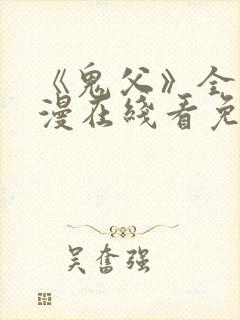 《鬼父》全
漫在线看免
吴奋强